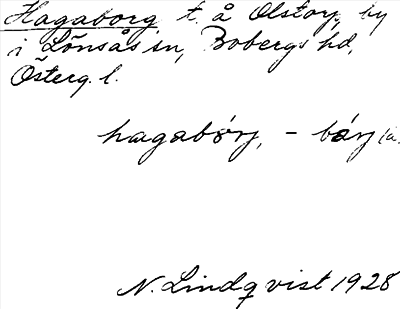 Hagaborg t. å Olstorp, by
i Lönsås sn, Bobergs hd,
Österg. l.
hagabórj, – bórj
N. Lindqvist 1928